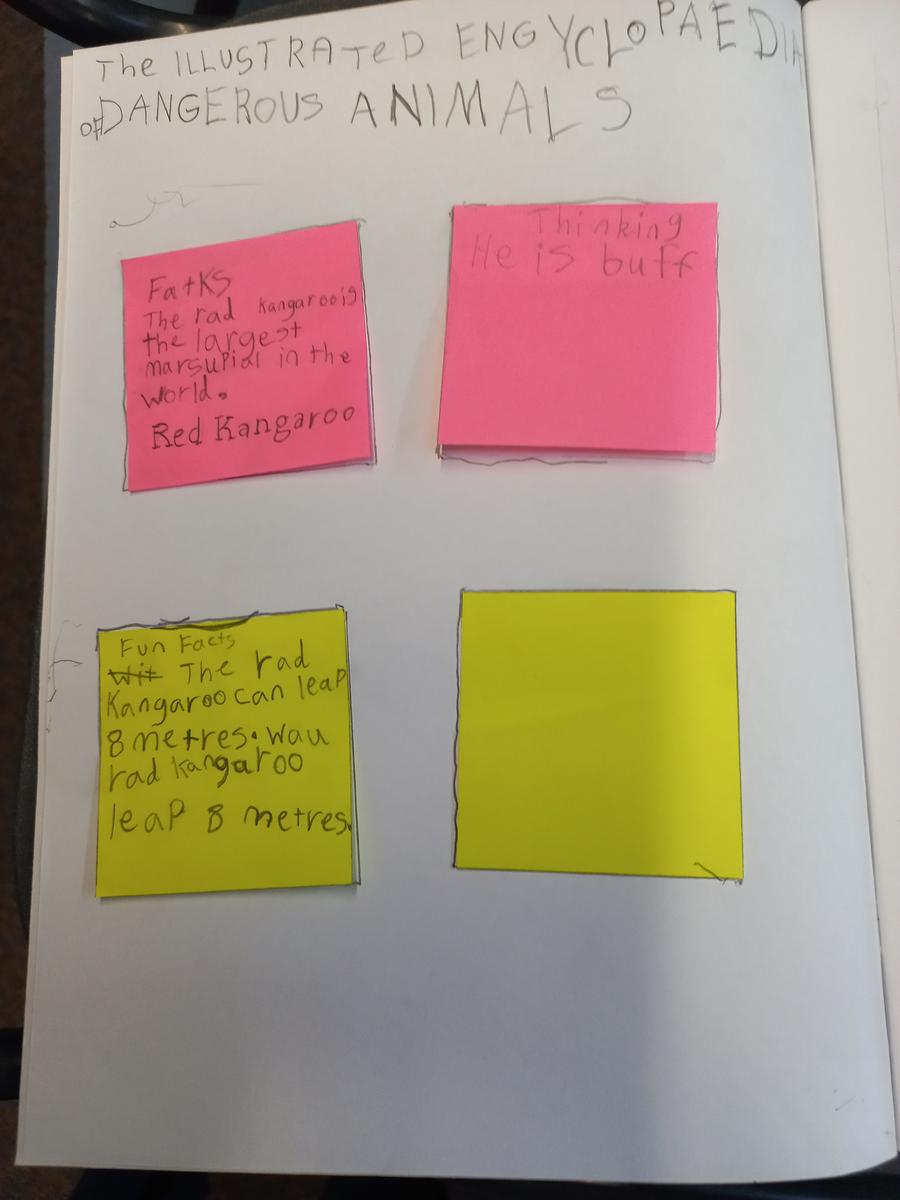 The ILLUSTRATED ENGYCLOPAEDIA
of DANGEROUS ANIMALS
Fatks
The rad kangaroo is
the largest
marsupial in the
world.
Red Kangaroo
Thinking
He is buff
Fun Facts
Wit The rad
Kangaroo can leap
8 metres. wau
rad kangaroo
leap 8 metres.